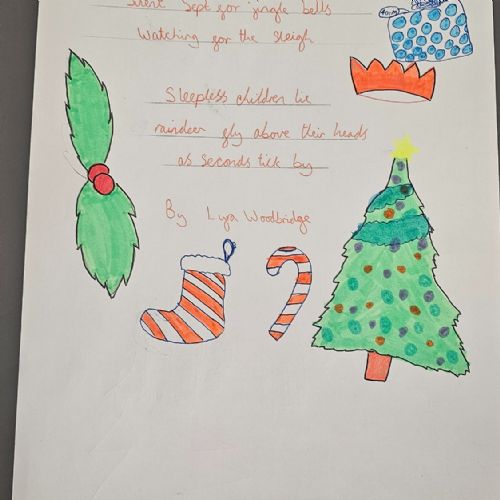 Silent Sept for jingle bells
Watching for the sleigh
Sleepless children lie
raindeer fly above their heads
as seconds tick by
By Lyra Woodbridge